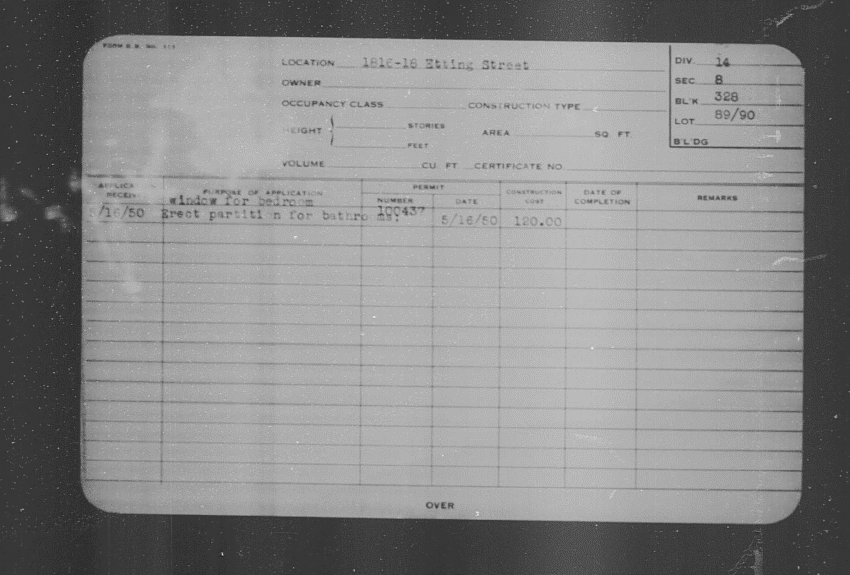 FORM B.B. No. 111
LOCATION 1816-18 Etting Street
OWNER
OCCUPANCY CLASS CONSTRUCTION TYPE
HEIGHT STORIES FEET AREA SQ. FT.
VOLUME CU. FT. CERTIFICATE NO.
DIV. 14
SEC. 8
BL'K 328
LOT 89/90
B'L'DG
APPLICATION RECEIV PURPOSE OF APPLICATION PERMIT NUMBER DATE CONSTRUCTION COST DATE OF COMPLETION REMARKS
window for bedroom
5/16/50 Erect partition for bathrooms. 100437 5/16/50 120.00
OVER